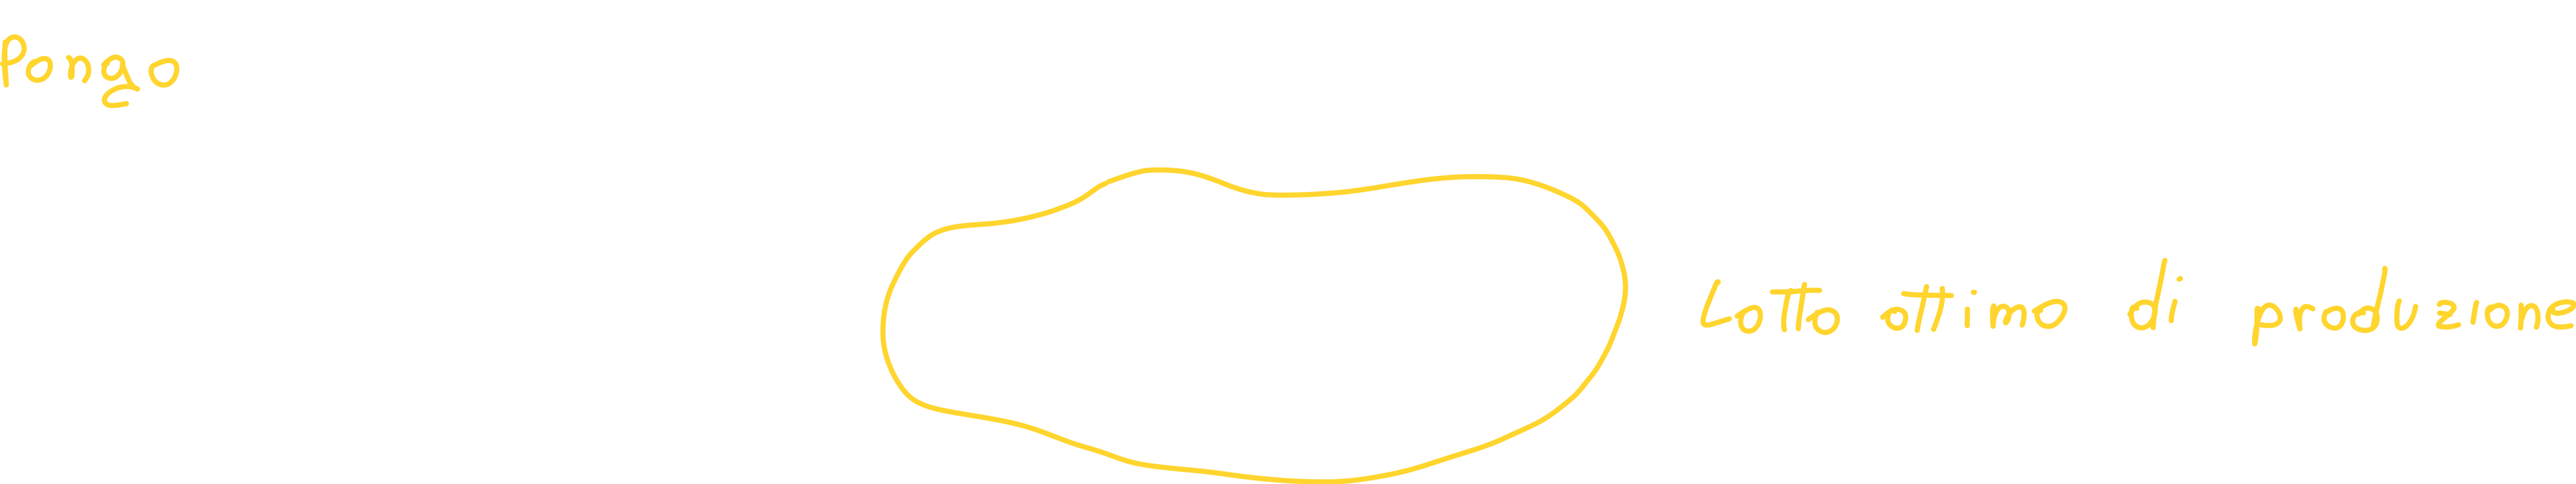 Pongo
Lotto ottimo di produzione